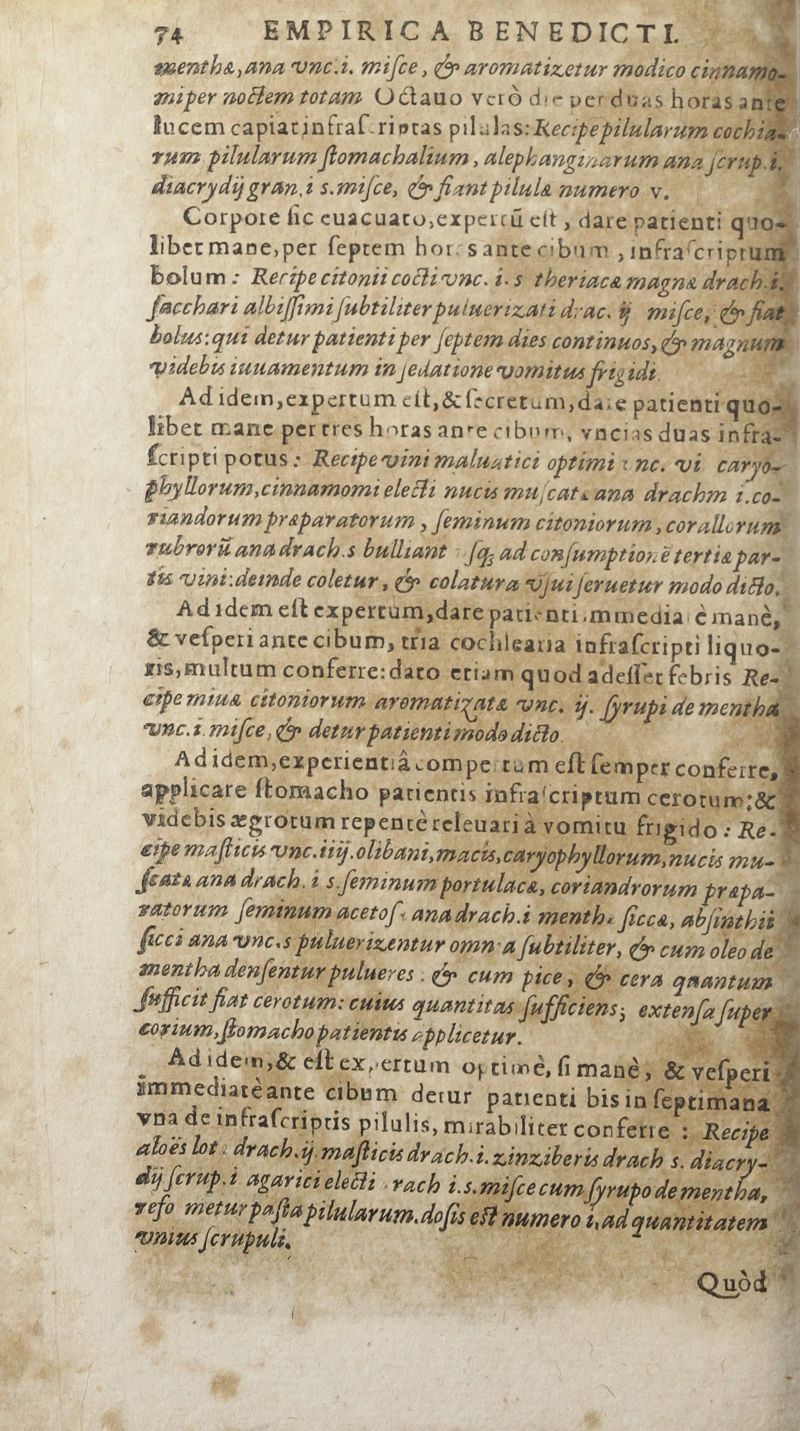 74 EMPIRICA BENEDICTI.
menthæ, ana vnc.i. misce, & aromatizetur modico cinnamo-
mi per noctem totam Octauo verò die per duas horas ante
lucem capiat infrascriptas pilulas: Recipe pilularum cochia-
rum pilularum stomachalium, alephanginarum ana scrup.i.
diacrydij gran.i s.misce, & fiant pilulæ numero v.
Corpore sic euacuato, expertũ est, dare patienti quo-
libet mane, per septem horas ante cibum, infrascriptum
bolum: Recipe citonii cocti vnc. i. s theriacæ magnæ drach.i.
sacchari albissimi subtiliter puluerizati drac. ij misce, & fiat
bolus: qui detur patienti per septem dies continuos, & magnum
videbis iuuamentum in sedatione vomitus frigidi
Ad idem, expertum est, & secretum, dare patienti quo-
libet mane per tres horas ante cibum, vncias duas infra-
scripti potus: Recipe vini maluatici optimi vnc. vi caryo-
phyllorum, cinnamomi electi nucis muscatæ ana drachm i.co-
riandorum præparatorum, seminum citoniorum, corallorum
rubrorũ ana drach.s bulliant vsq; ad consumptionẽ tertiæ par-
tis vini: deinde coletur, & colatura vsui seruetur modo dicto.
Ad idem est expertum, dare patienti immediatè manè,
& vesperi ante cibum, tria cochlearia infrascripti liquo-
ris, multum conferre: dato etiam quod adesset febris Re-
cipe miuæ citoniorum aromatizatæ vnc. ij. syrupi de mentha
vnc.i. misce, & detur patienti modo dicto
Ad idem, experientiâ compertum est semper conferre,
applicare stomacho patientis infrascriptum cerotum: &
videbis ægrotum repentè releuari à vomitu frigido: Re-
cipe masticis vnc.iiij. olibani, macis, caryophyllorum, nucis mu-
scatæ ana drach. i s.seminum portulacæ, coriandrorum præpa-
ratorum seminum acetos. ana drach.i menthæ siccæ, absinthii
sicci ana vnc.s puluerizentur omnia subtiliter, & cum oleo de
mentha densentur pulueres: & cum pice, & cera quantum
sufficit fiat cerotum: cuius quantitas sufficiens, extensa super
corium, stomacho patientis applicetur.
Ad idem, & est expertum optimè, si manè, & vesperi
immediatè ante cibum detur patienti bis in septimana
vna de infrascriptis pilulis, mirabiliter conferre: Recipe
aloës lot. drach.ij. masticis drach.i. zinziberis drach s. diacry-
dij scrup.i agarici electi drach i.s. misce cum syrupo de mentha,
refo metur pasta pilularum. dosis est numero i, ad quantitatem
vnius scrupuli.
Quòd